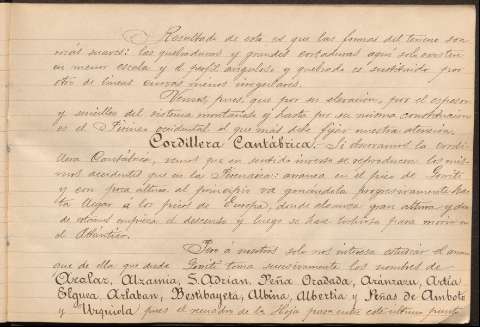 Resultado de esto es que las formas del terreno son
más suaves: las quebraduras y grandes cortaduras aquí solo existen
en menor escala y el perfil anguloso y quebrado es sustituido por
otro de lineas curvas menos irregulares.
Vemos, pues, que por su elevación, por el espesor
y sencillez del sistema montañoso y hasta por su misma constitucion
es el Pirineo occidental el que mas debe fijar nuestra atencion.
Cordillera Cantábrica. Si observamos la cordi-
llera Cantábrica, vemos que en sentido inverso se reproducen los mis-
mos accidentes que en la Pirenaica: arranca en el pico de Goriti
y con poca altura al principio va ganandola progresivamente has-
ta llegar á los picos de Europa, donde alcanza gran altura y des-
de estos empieza el descenso y luego se hace para morir en
el Atlántico.
Pero á nosotros solo nos interesa estudiar el arran-
que de ella que desde Goriti toma sucesivamente los nombres de
Azcalar, Alzania, S. Adrian, Peña Oradada, Aranzazu, Artia
Elguea Arlaban, Bestibayeta, Albina, Albertia y Peñas de Amboto
y Urquiola pues el murallon de la Hoja pasa entre este ultimo punto